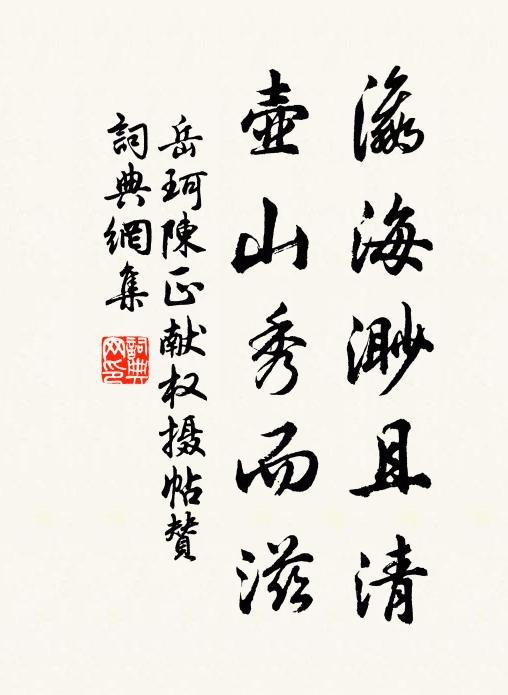 瀛海渺且清
壶山秀而滋
岳珂陳正献权摄帖贊
詞典網集
詞典網印